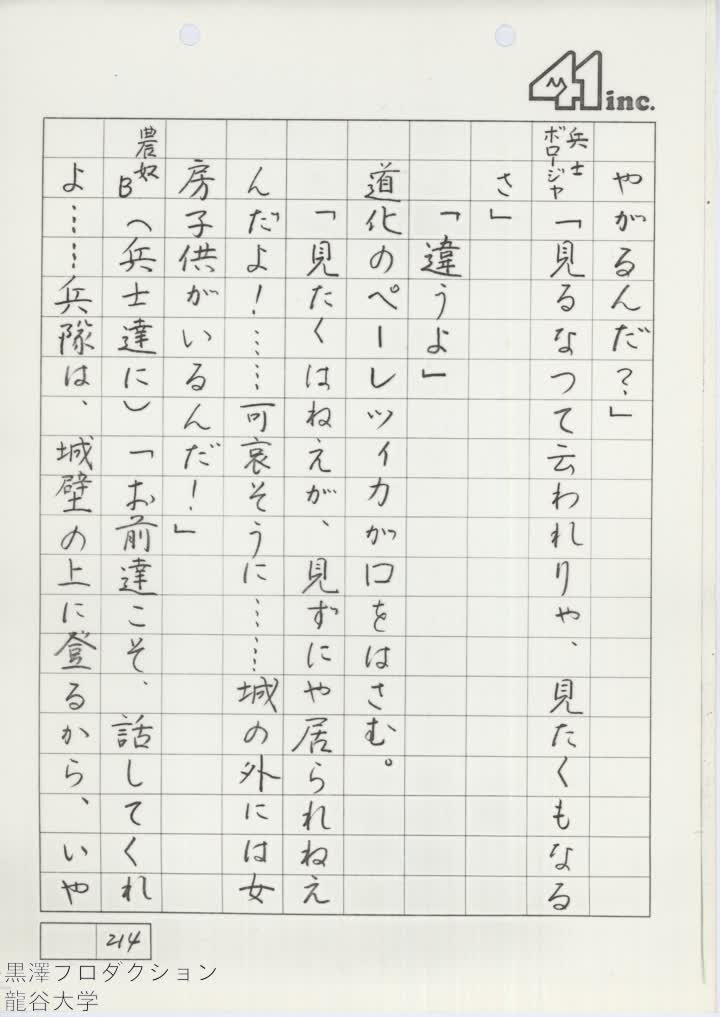 41 inc.
やがるんだ?」
兵士ボロージャ「見るなって云われりや、見たくもなる
さ」
「違うよ」
道化のペーレツイカが口をはさむ。
「見たくはねえが、見ずにや居られねえ
んだよ!……可哀そうに……城の外には女
房子供がいるんだ!」
農奴B(兵士達に)「お前達こそ、話してくれ
よ……兵隊は、城壁の上に登るから、いや
214
黒澤プロダクション
龍谷大学